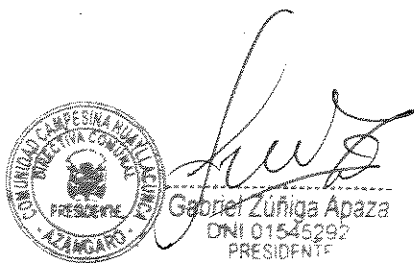 COMUNIDAD CAMPESINA HUAYLLACUNCA
DIRECTIVA COMUNAL
PRESIDENTE
- AZÁNGARO -
Gabriel Zúñiga Apaza
DNI 01545292
PRESIDENTE